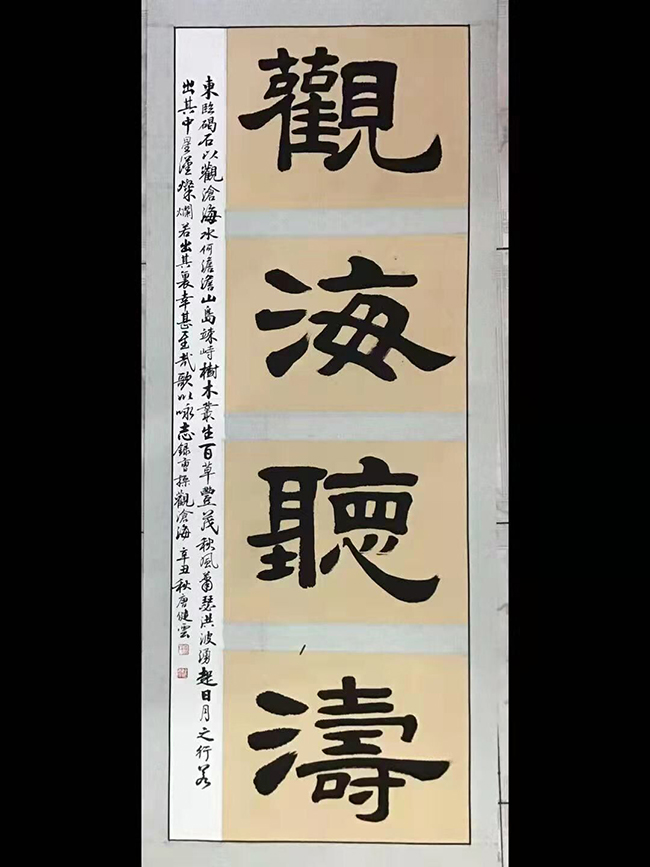 觀海聽濤
東臨碣石以觀滄海水何澹澹山島竦峙樹木叢生百草豐茂秋風蕭瑟洪波湧起日月之行若
出其中星漢燦爛若出其裏幸甚至哉歌以詠志錄曹操觀滄海 辛丑秋唐健雲